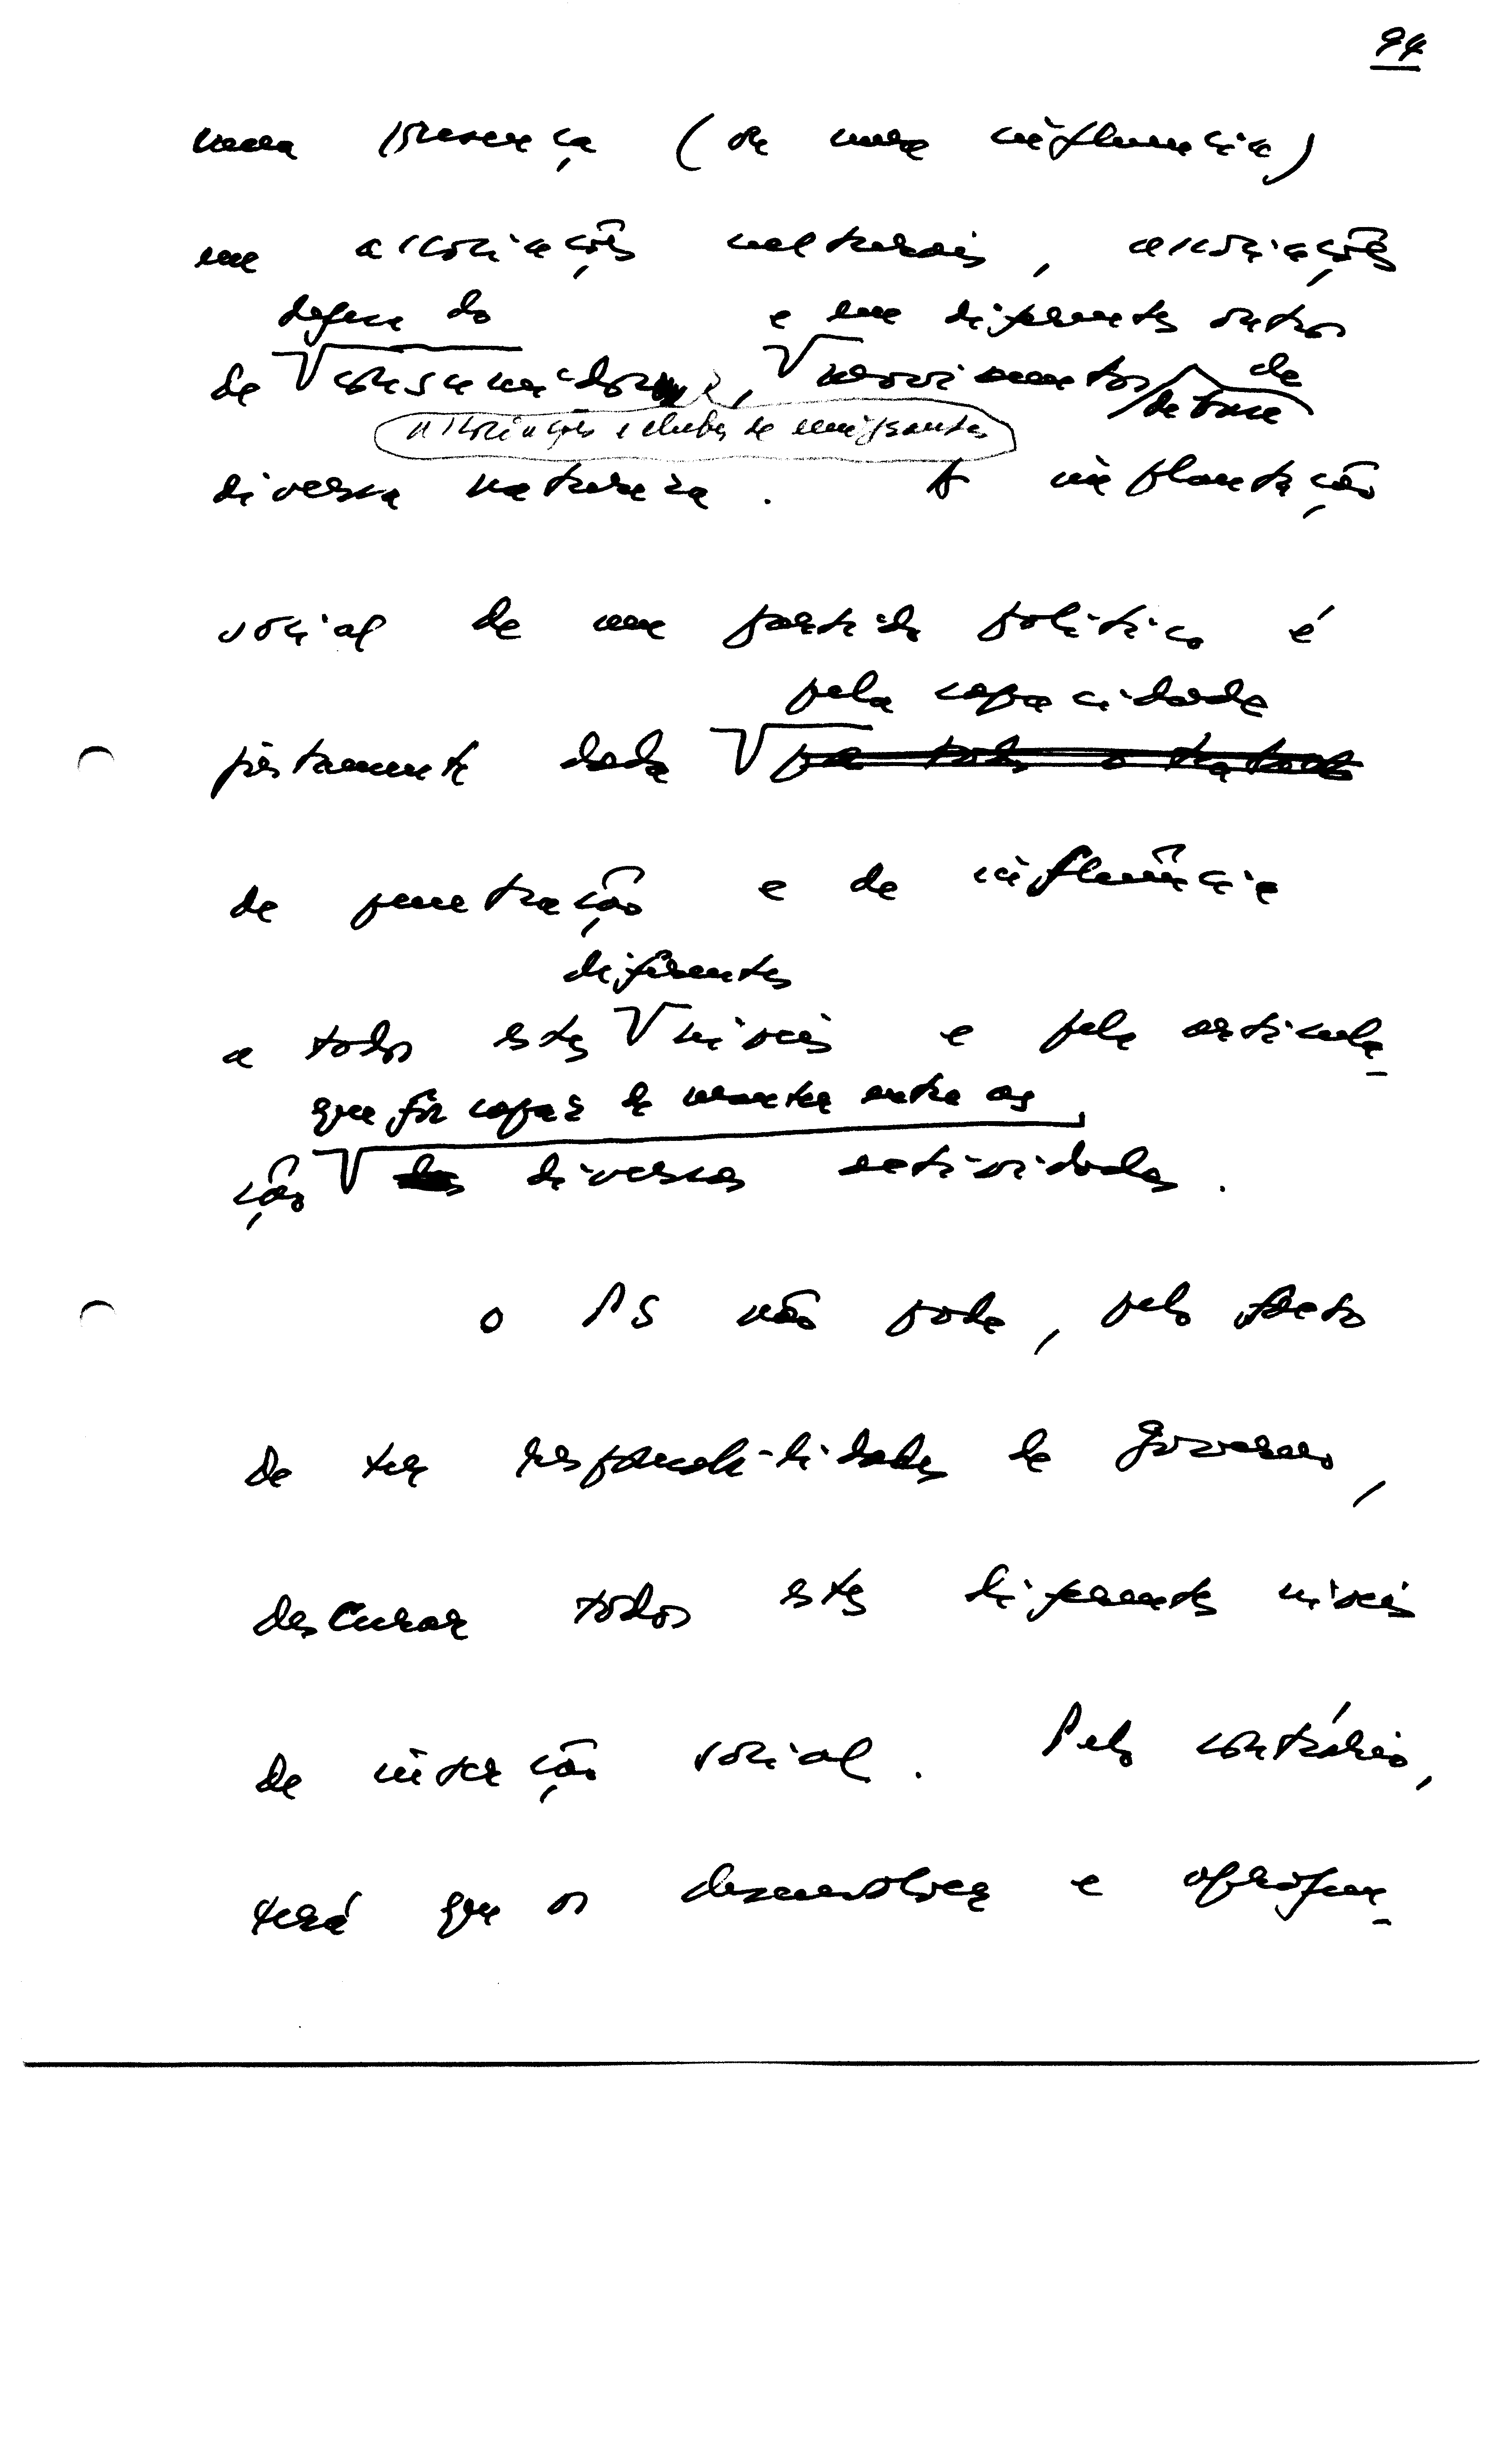 94
uma presença (ou uma influência)
em associações culturais, associações
defesa do e em diferentes outros
de consumidor, movimentos de base de
associações e clubes de emigrantes
diversa natureza. A implantação
social de um partido político é
pela capacidade
justamente dada por todo o trabalho
de penetração e de influência
diferentes
a todos estes níveis e pela articula-
que fôr capaz de manter entre as
ção das diversas actividades.
O PS não pode, pelo facto
de ter responsabilidades de governo,
descurar todos estes diferentes níveis
de inserção social. Pelo contrário,
terá que os desenvolver e aprofun-